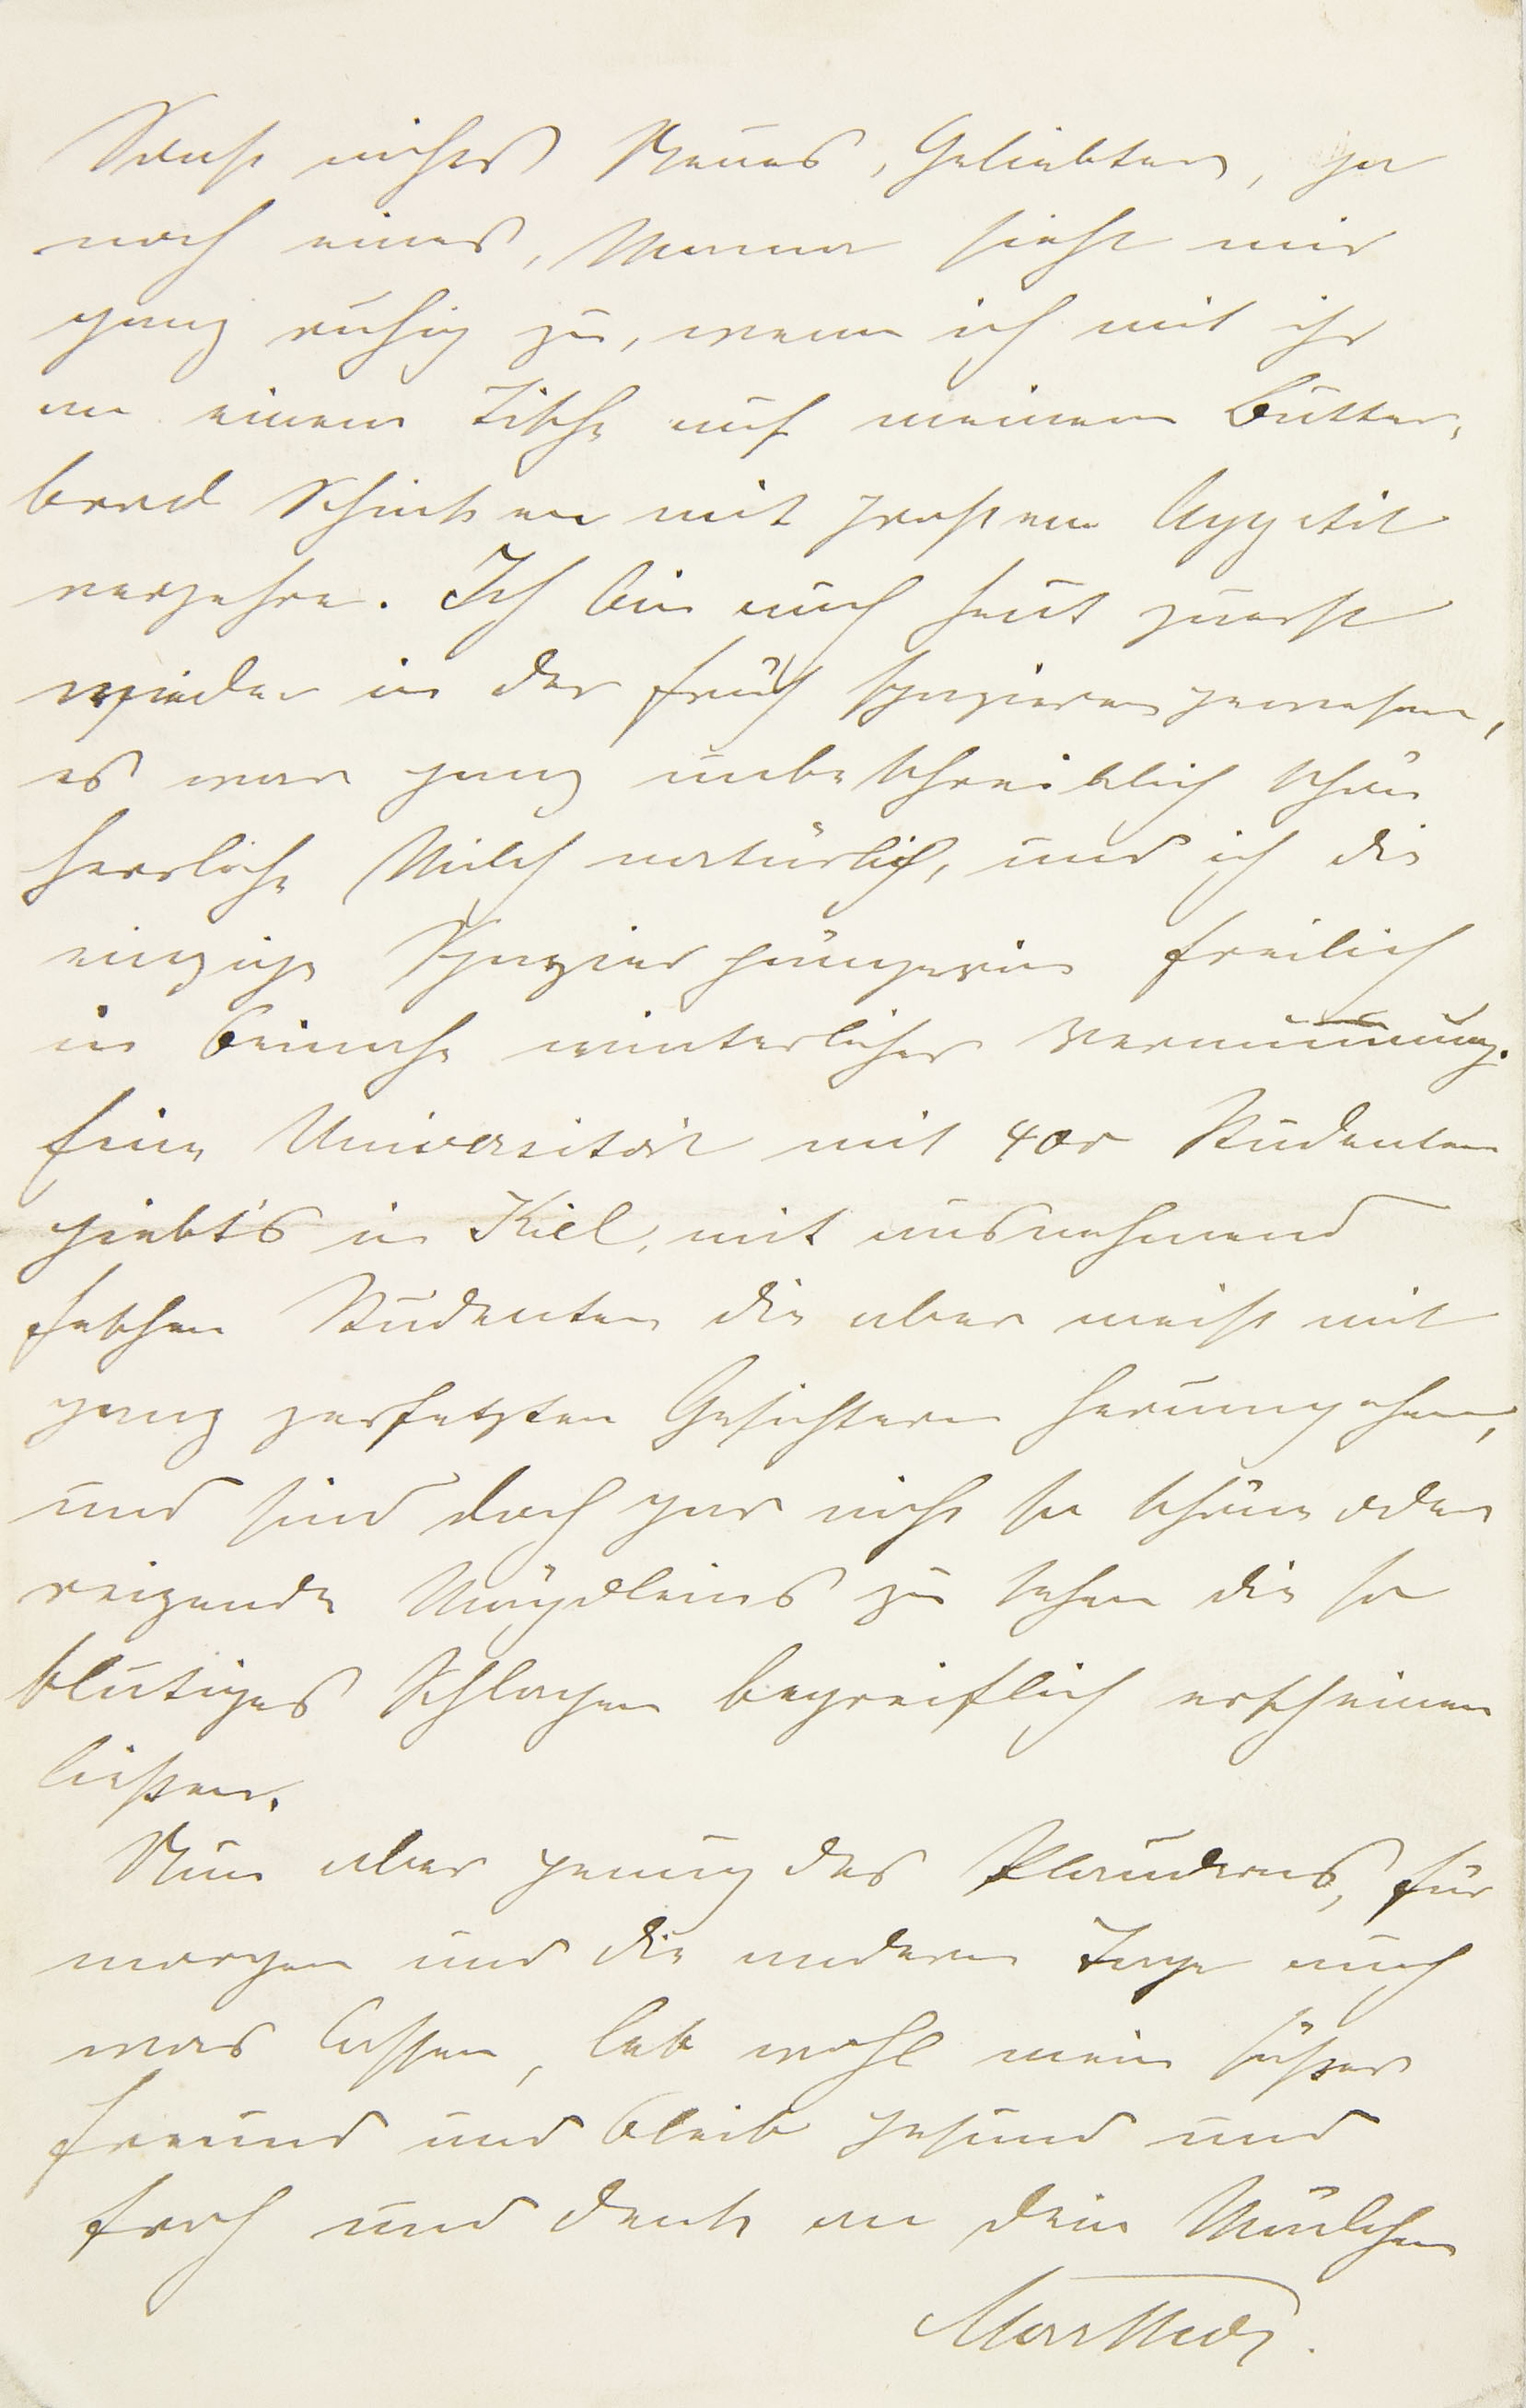 Sonst nichts Neues, Geliebter, ja
noch eines, Mama sieht mir
ganz ruhig zu, wenn ich mit ihr
an einem Tische auf meinem Butter-
brod Schinken mit großem Appetit
verzehre. Ich bin auch heut zuerst
wieder in der früh spazieren gewesen,
es war ganz unbeschreiblich schön
herrliche Milch natürlich, und ich die
einzige Spaziergängerin freilich
in beinahe winterlicher Vermummung.
Eine Universität mit 400 Studenten
giebt's in Kiel, mit ausnehmend
feschen Studenten die aber meist mit
ganz zerfetzten Gesichtern herumgehen,
und sind doch gar nicht so schöne oder
reizende Mägdleins zu sehen die so
blutiges Schlagen begreiflich erscheinen
ließen.
Nun aber genug des Plauderns, für
morgen und die andern Tage auch
was lassen, leb wohl mein süßer
Freund und bleib gesund und
froh und denk an dein Mädchen
Marthed.